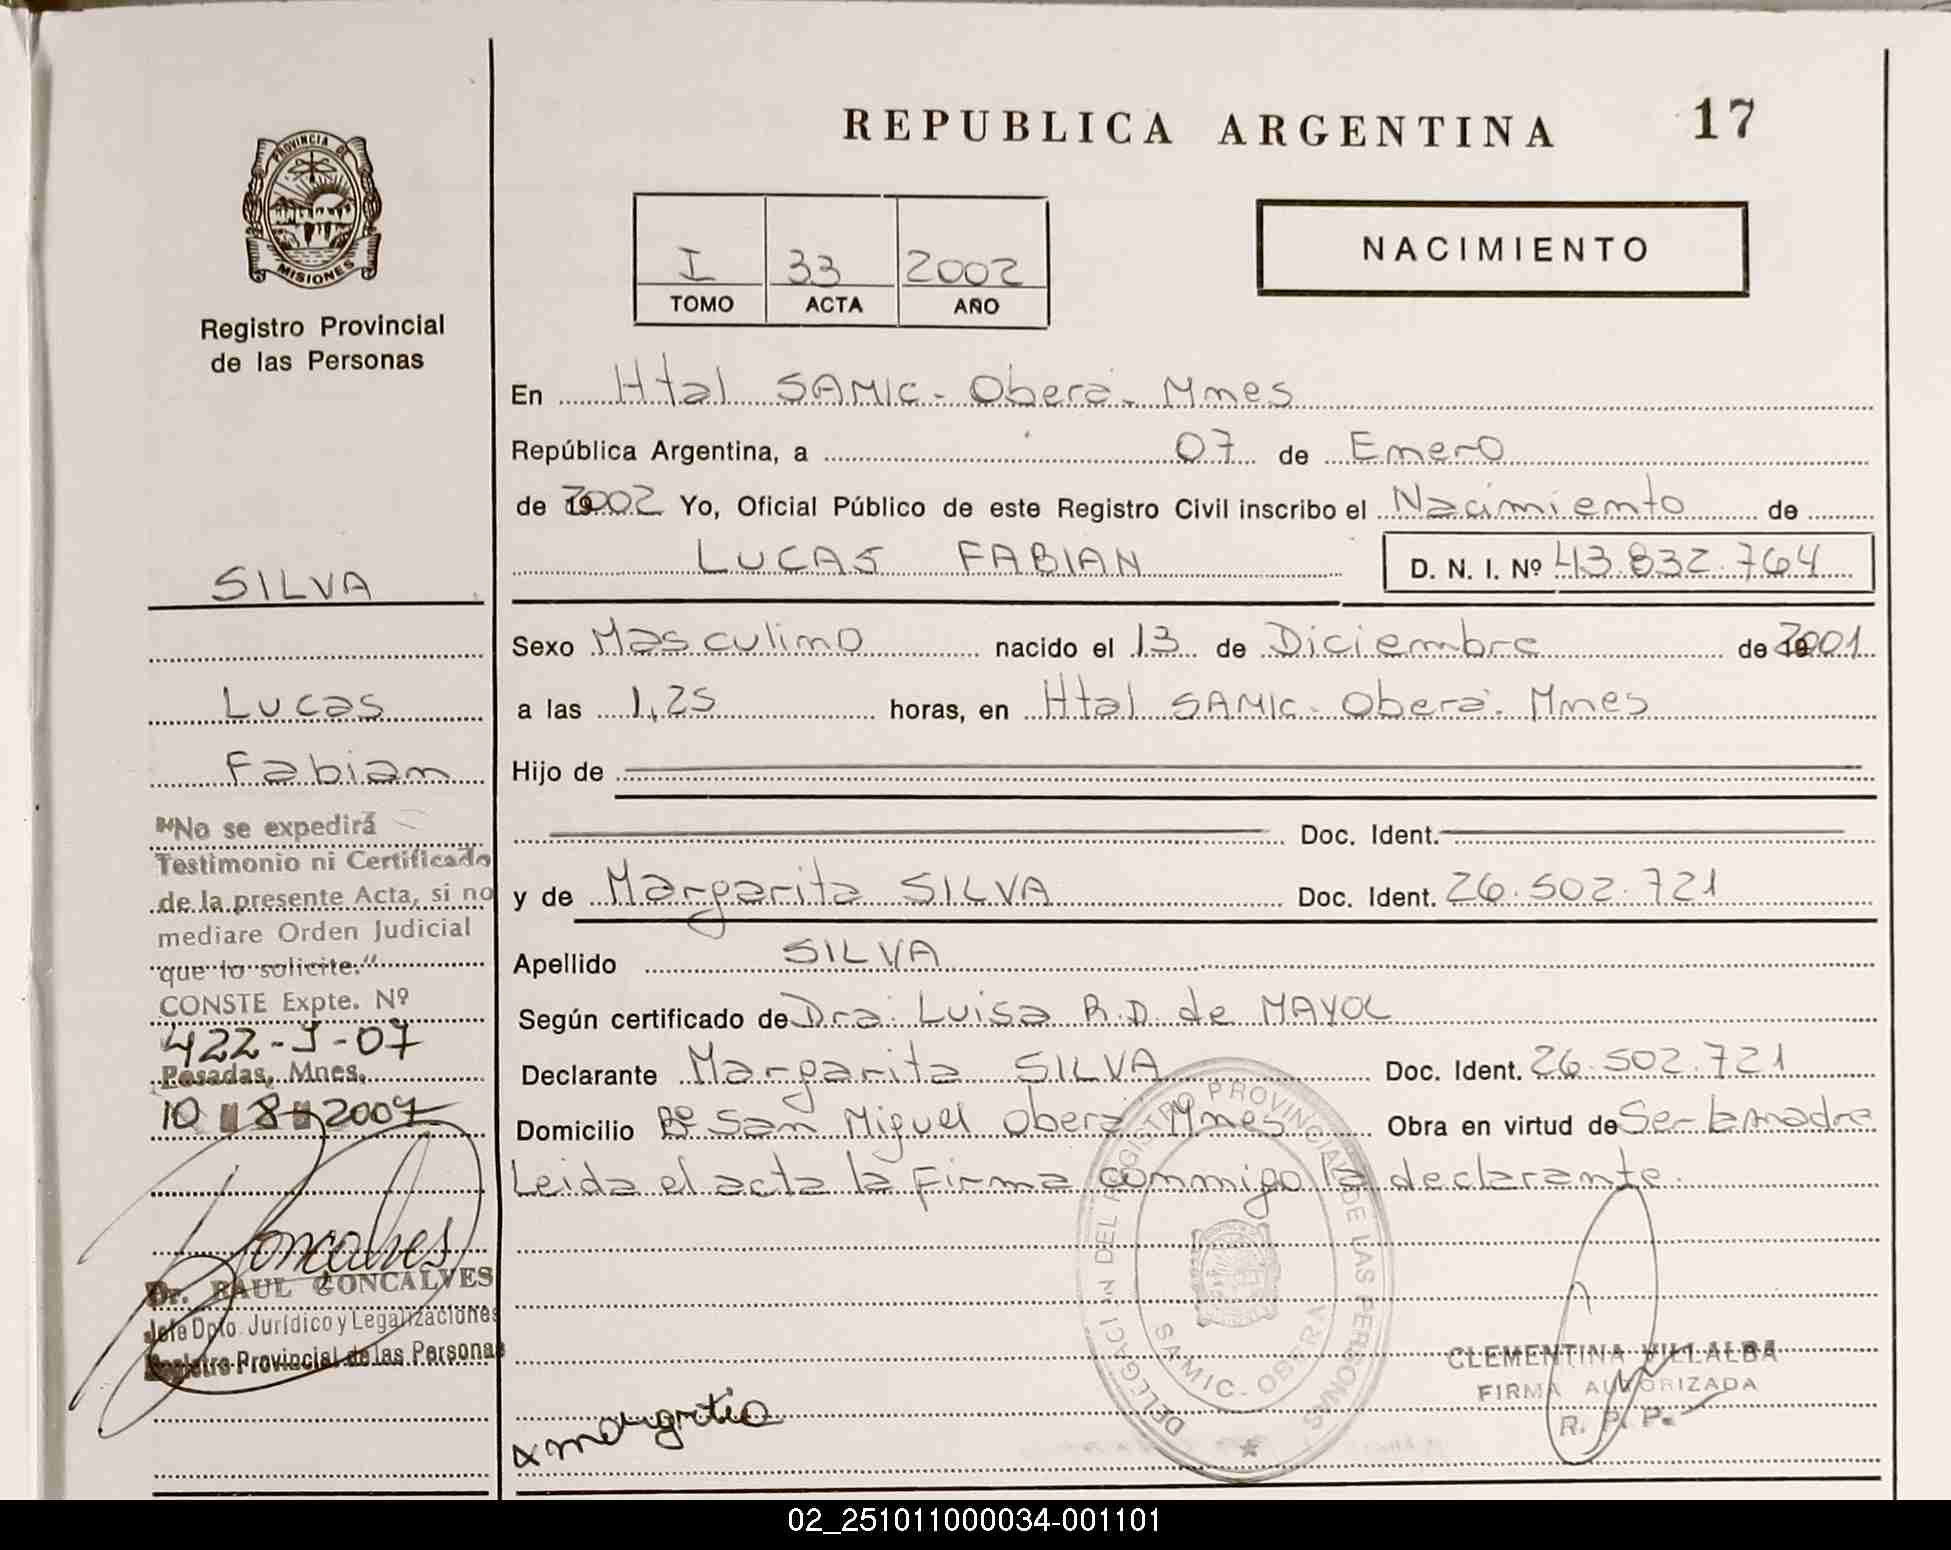 REPUBLICA ARGENTINA 17
PROVINCIA DE
MISIONES
Registro Provincial
de las Personas
I 33 2002
TOMO ACTA AÑO
NACIMIENTO
En Htal SAMIC - Oberá - Mnes
República Argentina, a 07 de Enero
de 2002 Yo, Oficial Público de este Registro Civil inscribo el Nacimiento de
LUCAS FABIAN D. N. I. Nº 43.832.764
Sexo Masculino nacido el 13 de Diciembre de 2001
a las 1,25 horas, en Htal SAMIC - Oberá - Mnes
Hijo de
Doc. Ident.
y de Margarita SILVA Doc. Ident. 26.502.721
Apellido SILVA
Según certificado de Dra. Luisa R.D. de MAYOL
Declarante Margarita SILVA Doc. Ident. 26.502.721
Domicilio Bº San Miguel Oberá Mnes Obra en virtud de Ser la madre
Leida el acta la Firma conmigo la declarante.
SILVA
Lucas
Fabian
"No se expedirá
Testimonio ni Certificado
de la presente Acta, si no
mediare Orden Judicial
que lo solicite."
CONSTE Expte. Nº
422-J-07
Posadas, Mnes,
10 8 2007
Goncalves
Dr. RAUL GONCALVES
Jefe Dpto. Jurídico y Legalizaciones
Registro Provincial de las Personas
x margritia
DELEGACION DEL REGISTRO PROVINCIAL DE LAS PERSONAS
SAMIC - OBERA
CLEMENTINA VILLALBA
FIRMA AUTORIZADA
R. P. P.
02_251011000034-001101